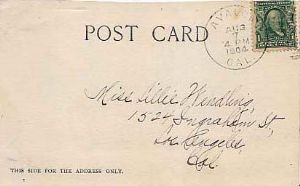 POST CARD
AVA
AUG
4 PM
1904
CAL.
Miss Lillie Wendling,
1524 Ingraham St,
Los Angeles,
Cal.
THIS SIDE FOR THE ADDRESS ONLY.